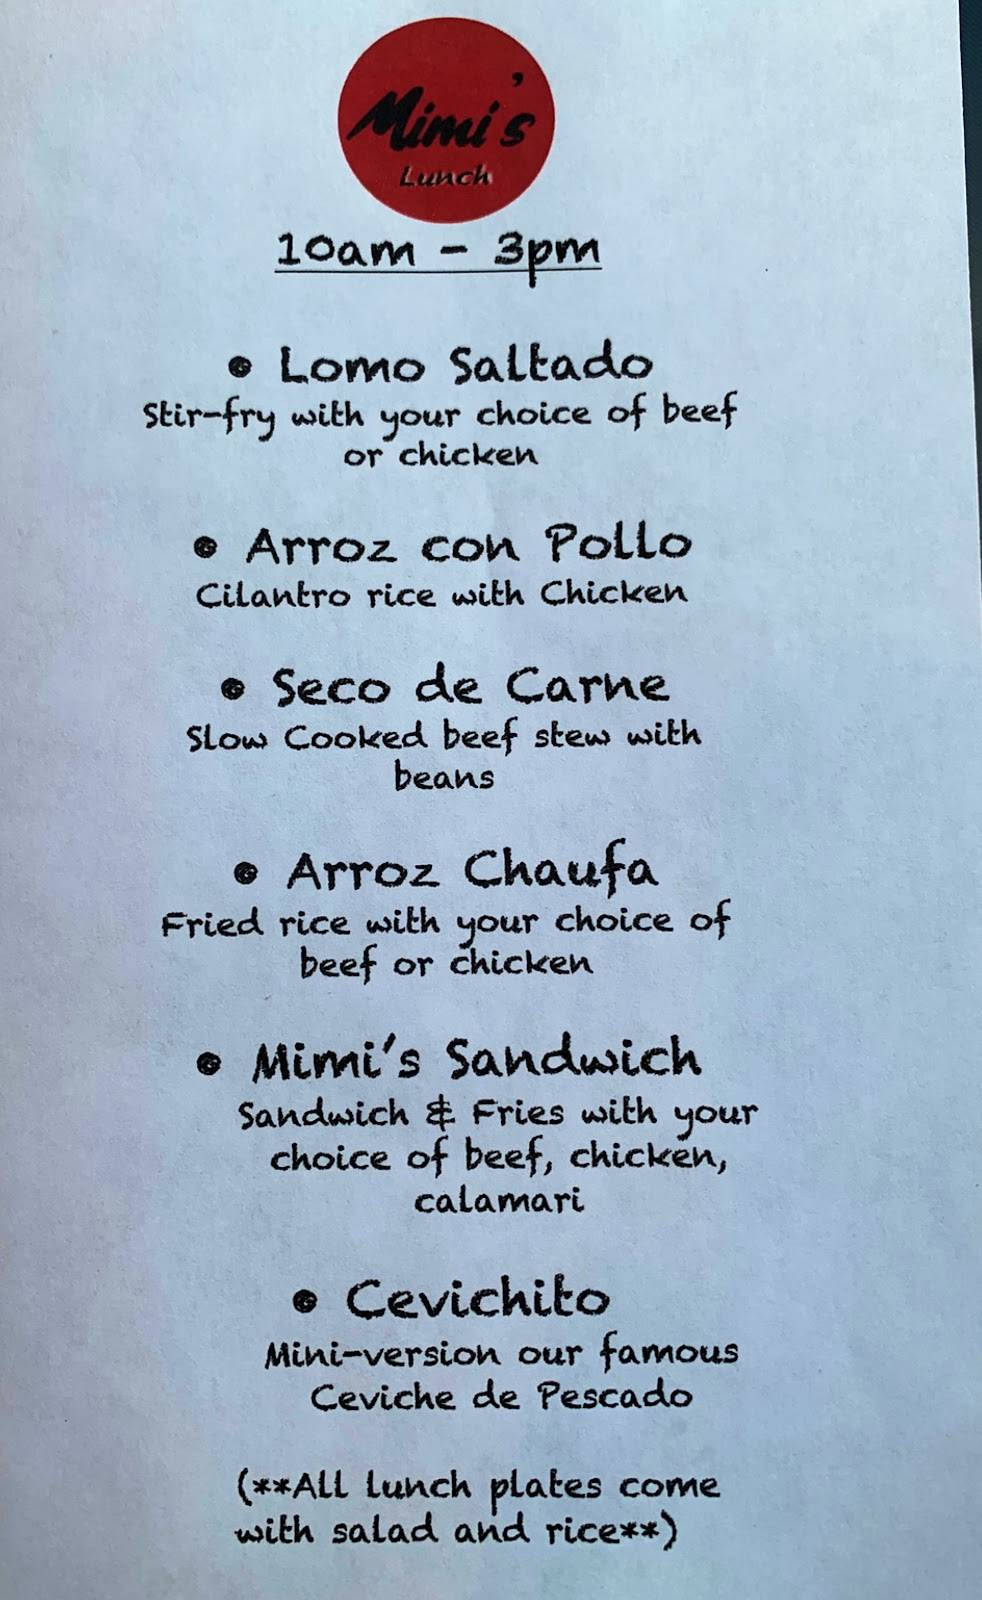 Mimi's
Lunch
10am - 3pm
• Lomo Saltado
Stir-fry with your choice of beef
or chicken
• Arroz con Pollo
Cilantro rice with Chicken
• Seco de Carne
Slow Cooked beef stew with
beans
• Arroz Chaufa
Fried rice with your choice of
beef or chicken
• Mimi's Sandwich
Sandwich & Fries with your
choice of beef, chicken,
calamari
• Cevichito
Mini-version our famous
Ceviche de Pescado
(**All lunch plates come
with salad and rice**)